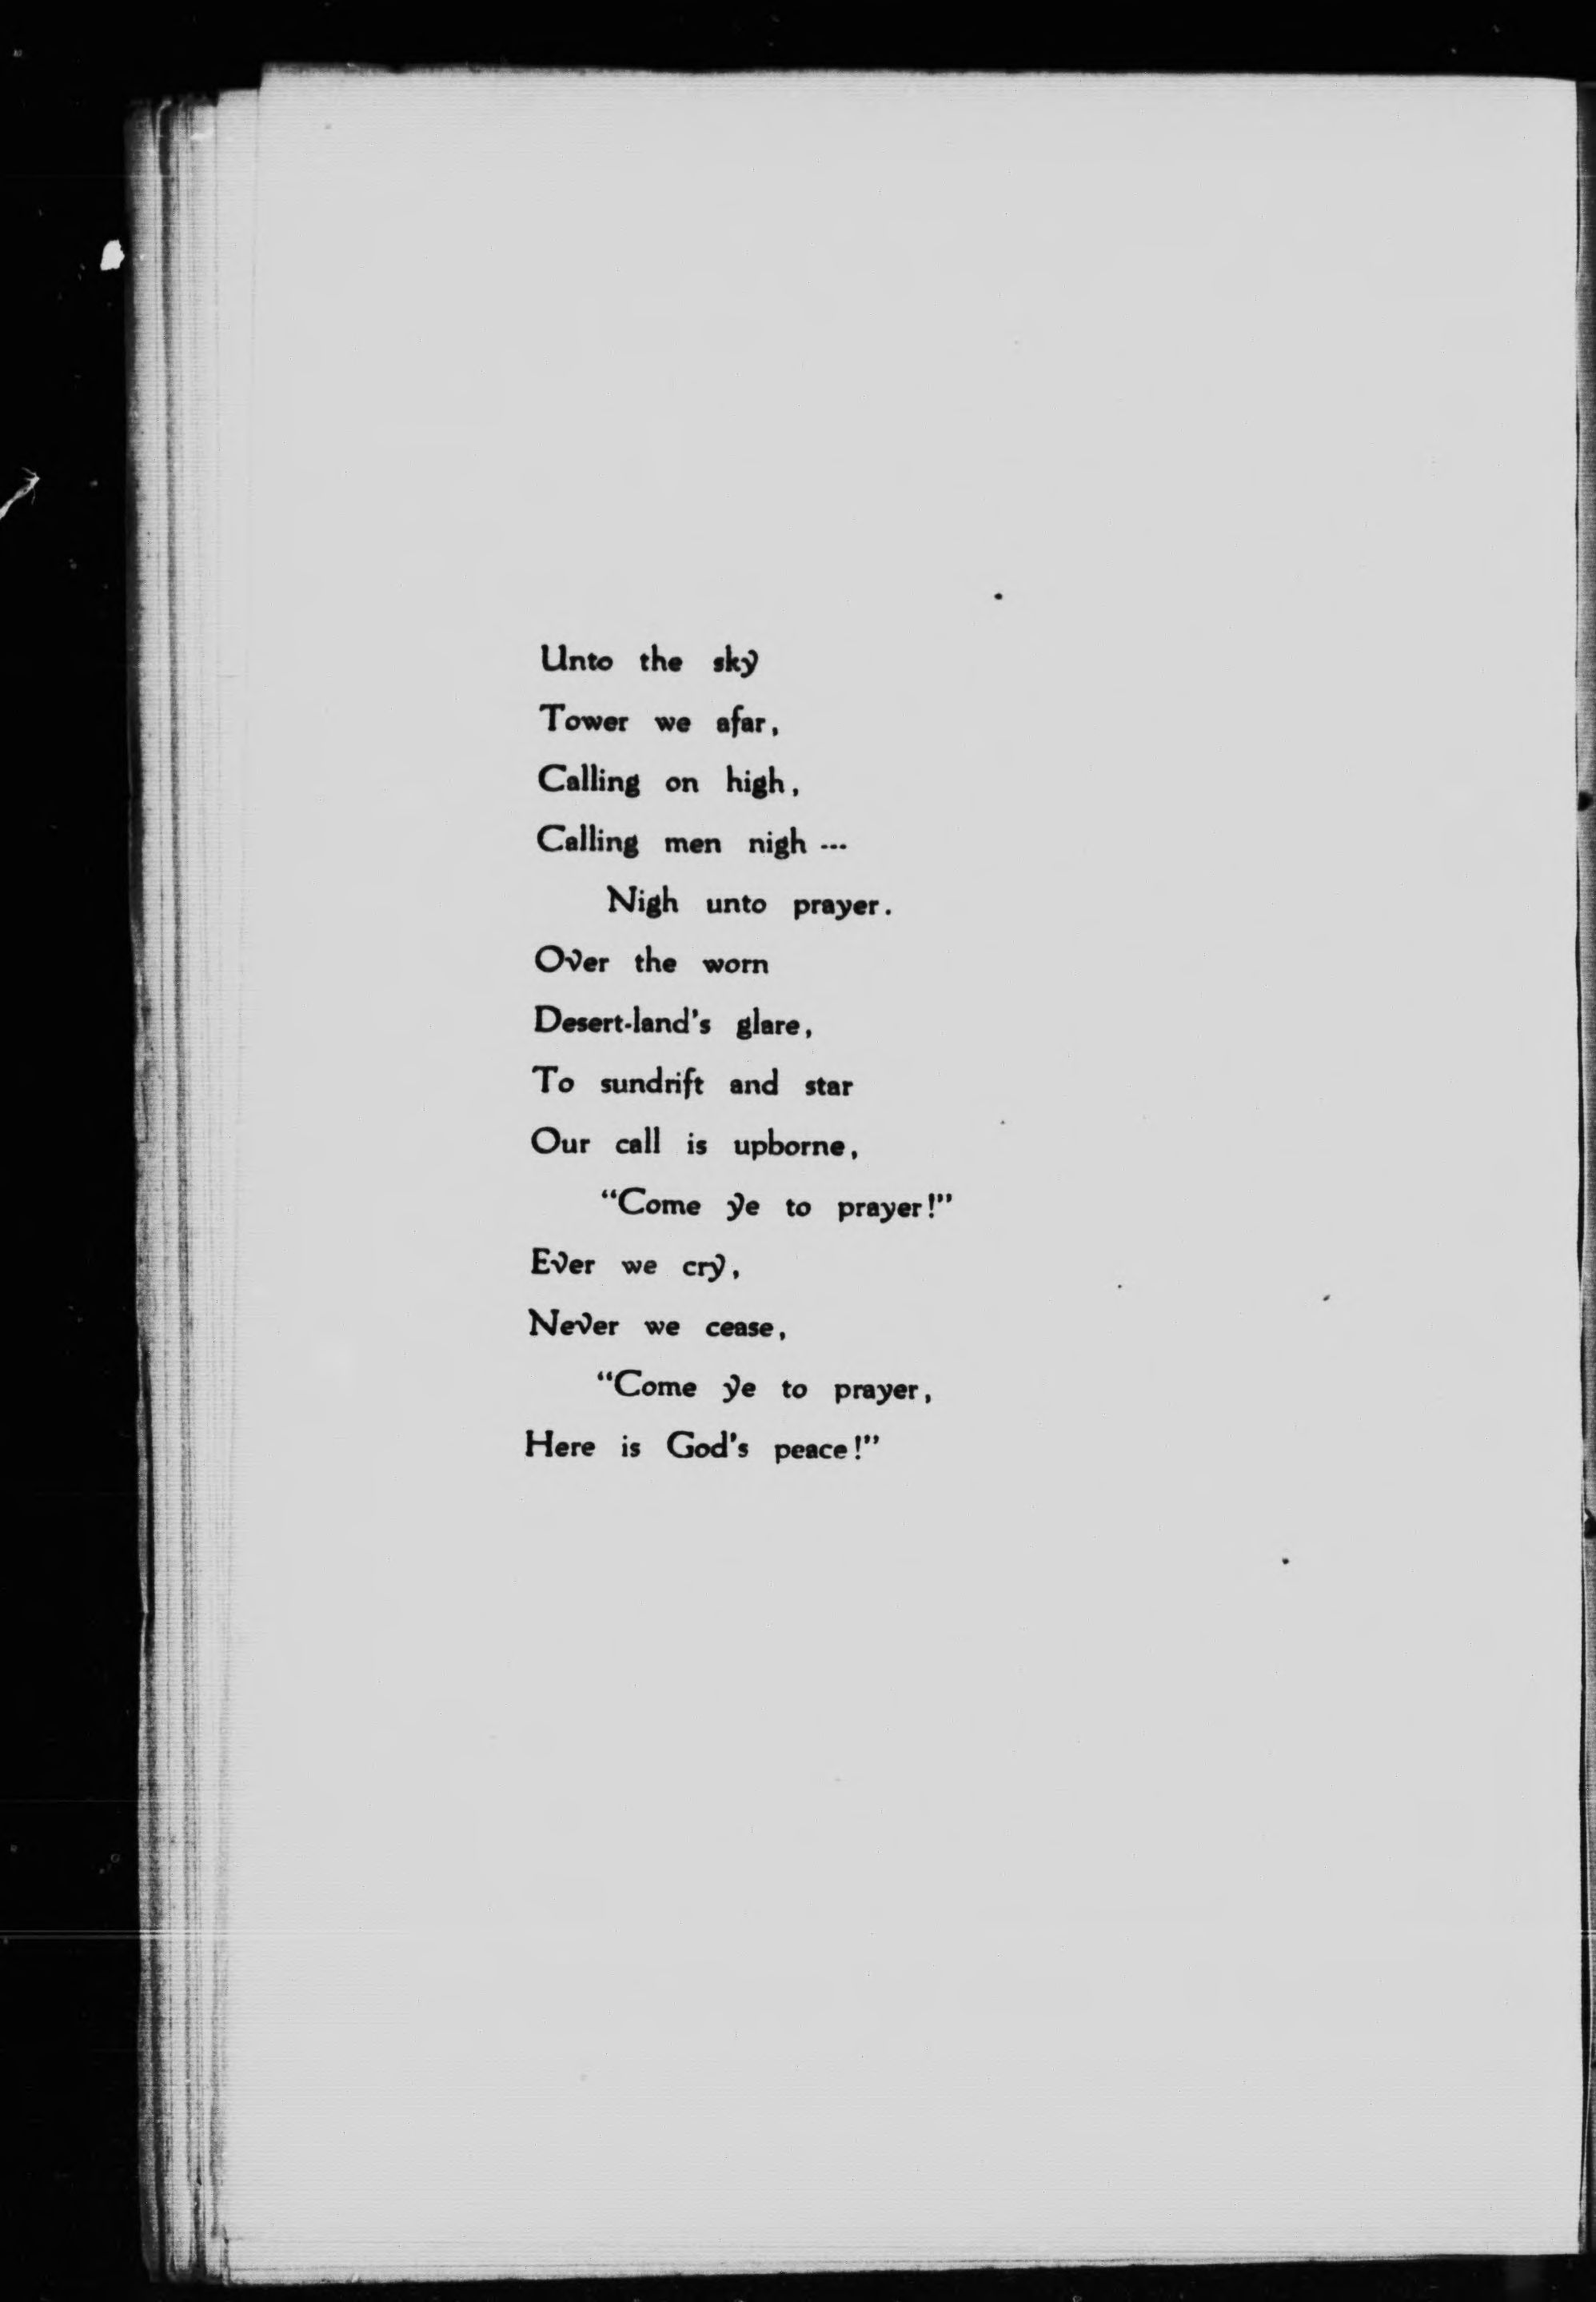 Unto the sky
Tower we afar,
Calling on high,
Calling men nigh ---
Nigh unto prayer.
Over the worn
Desert-land's glare,
To sundrift and star
Our call is upborne,
“Come ye to prayer!”
Ever we cry,
Never we cease,
“Come ye to prayer,
Here is God's peace!”